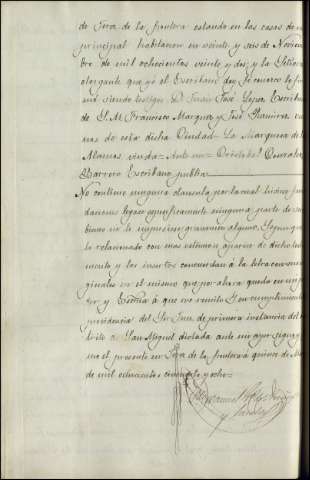 de Jera de la frontera estando en las casas de su
principal habitacion en veinte y seis de Noviem
bre de mil ochocientos veinte y dos y la Señora
otorgante que yo el Escribano doy fe conozco lo fir
mó siendo testigos D. Juan José Escribano
de S. M. Francisco Marquez y José Ramirez veci
nos de esta dicha Ciudad. La Marquesa de
Alamos viuda. Ante mi Cristobal Gonzalez
Barrero Escribano publico
No contiene ninguna clausula por la cual
ninguna parte de sus
bienes ni le impusiese gravamen alguno. Segun que
lo relacionado con mas estension aparece de dicho testa
mento y los insertos concuerdan á la letra con sus ori
ginales en el mismo que por ahora queda en mi po
der y Escribania á que me remito. Y en cumplimiento
providencia del Sor. Juez de primera instancia del dis
trito de San Miguel dictada ante mi ayer signo y fir
mo el presente en Jera de la frontera á quince de
de mil ochocientos cincuenta y ocho